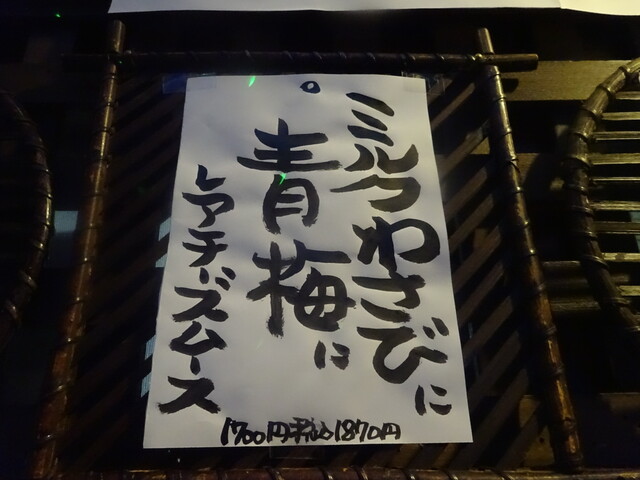 ミルクわさびに
。青梅に
レアチーズムース
1700円税込1870円